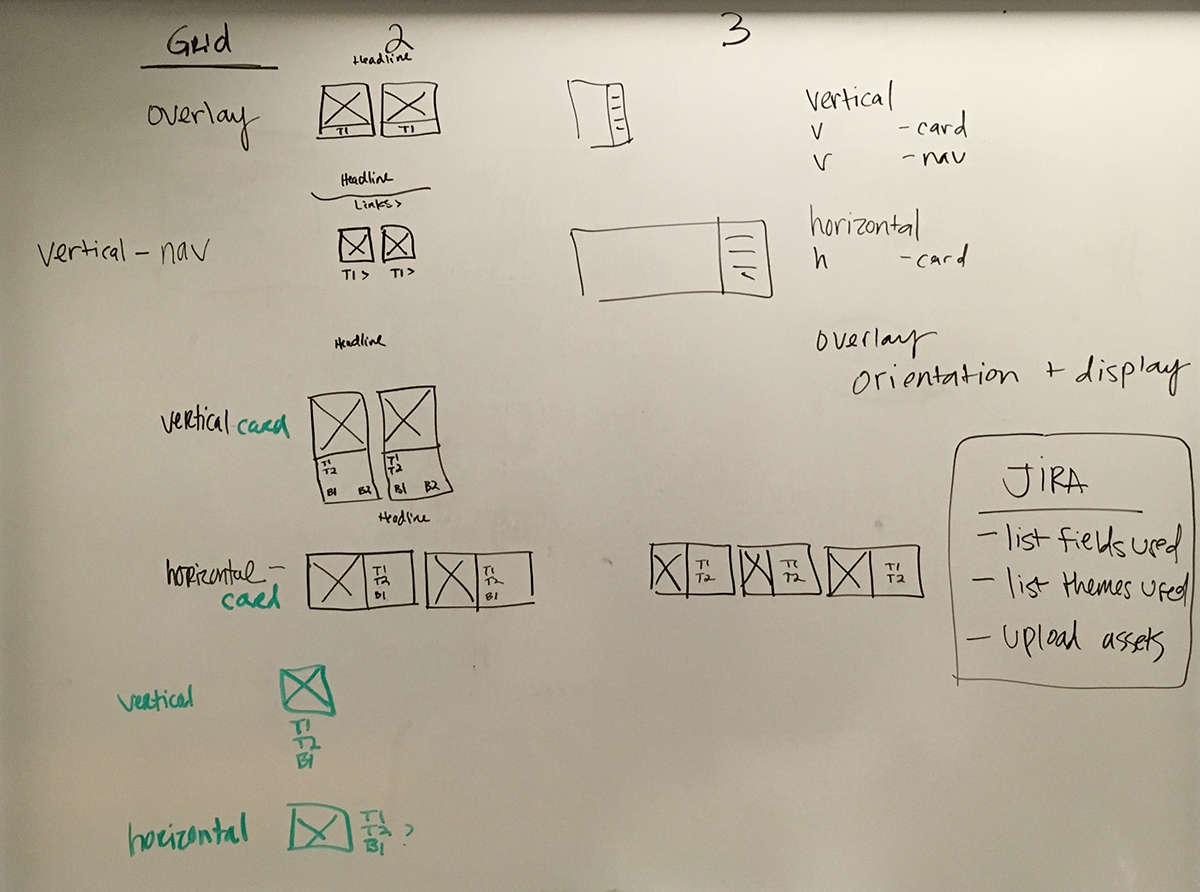 Grid 2 3
Headline
overlay
T1 T1
vertical
v - card
v - nav
Headline
Links >
vertical - nav
T1 > T1 >
horizontal
h - card
Headline
overlay
orientation + display
vertical card
T1 T1
T2 T2
B1 B2 B1 B2
Headline
horizontal -
card
T1 T1
T2 T2
B1 B1
T1 T1 T1
T2 T2 T2
JIRA
- list fields used
- list themes used
- upload assets
vertical
T1
T2
B1
horizontal
T1
T2 >
B1